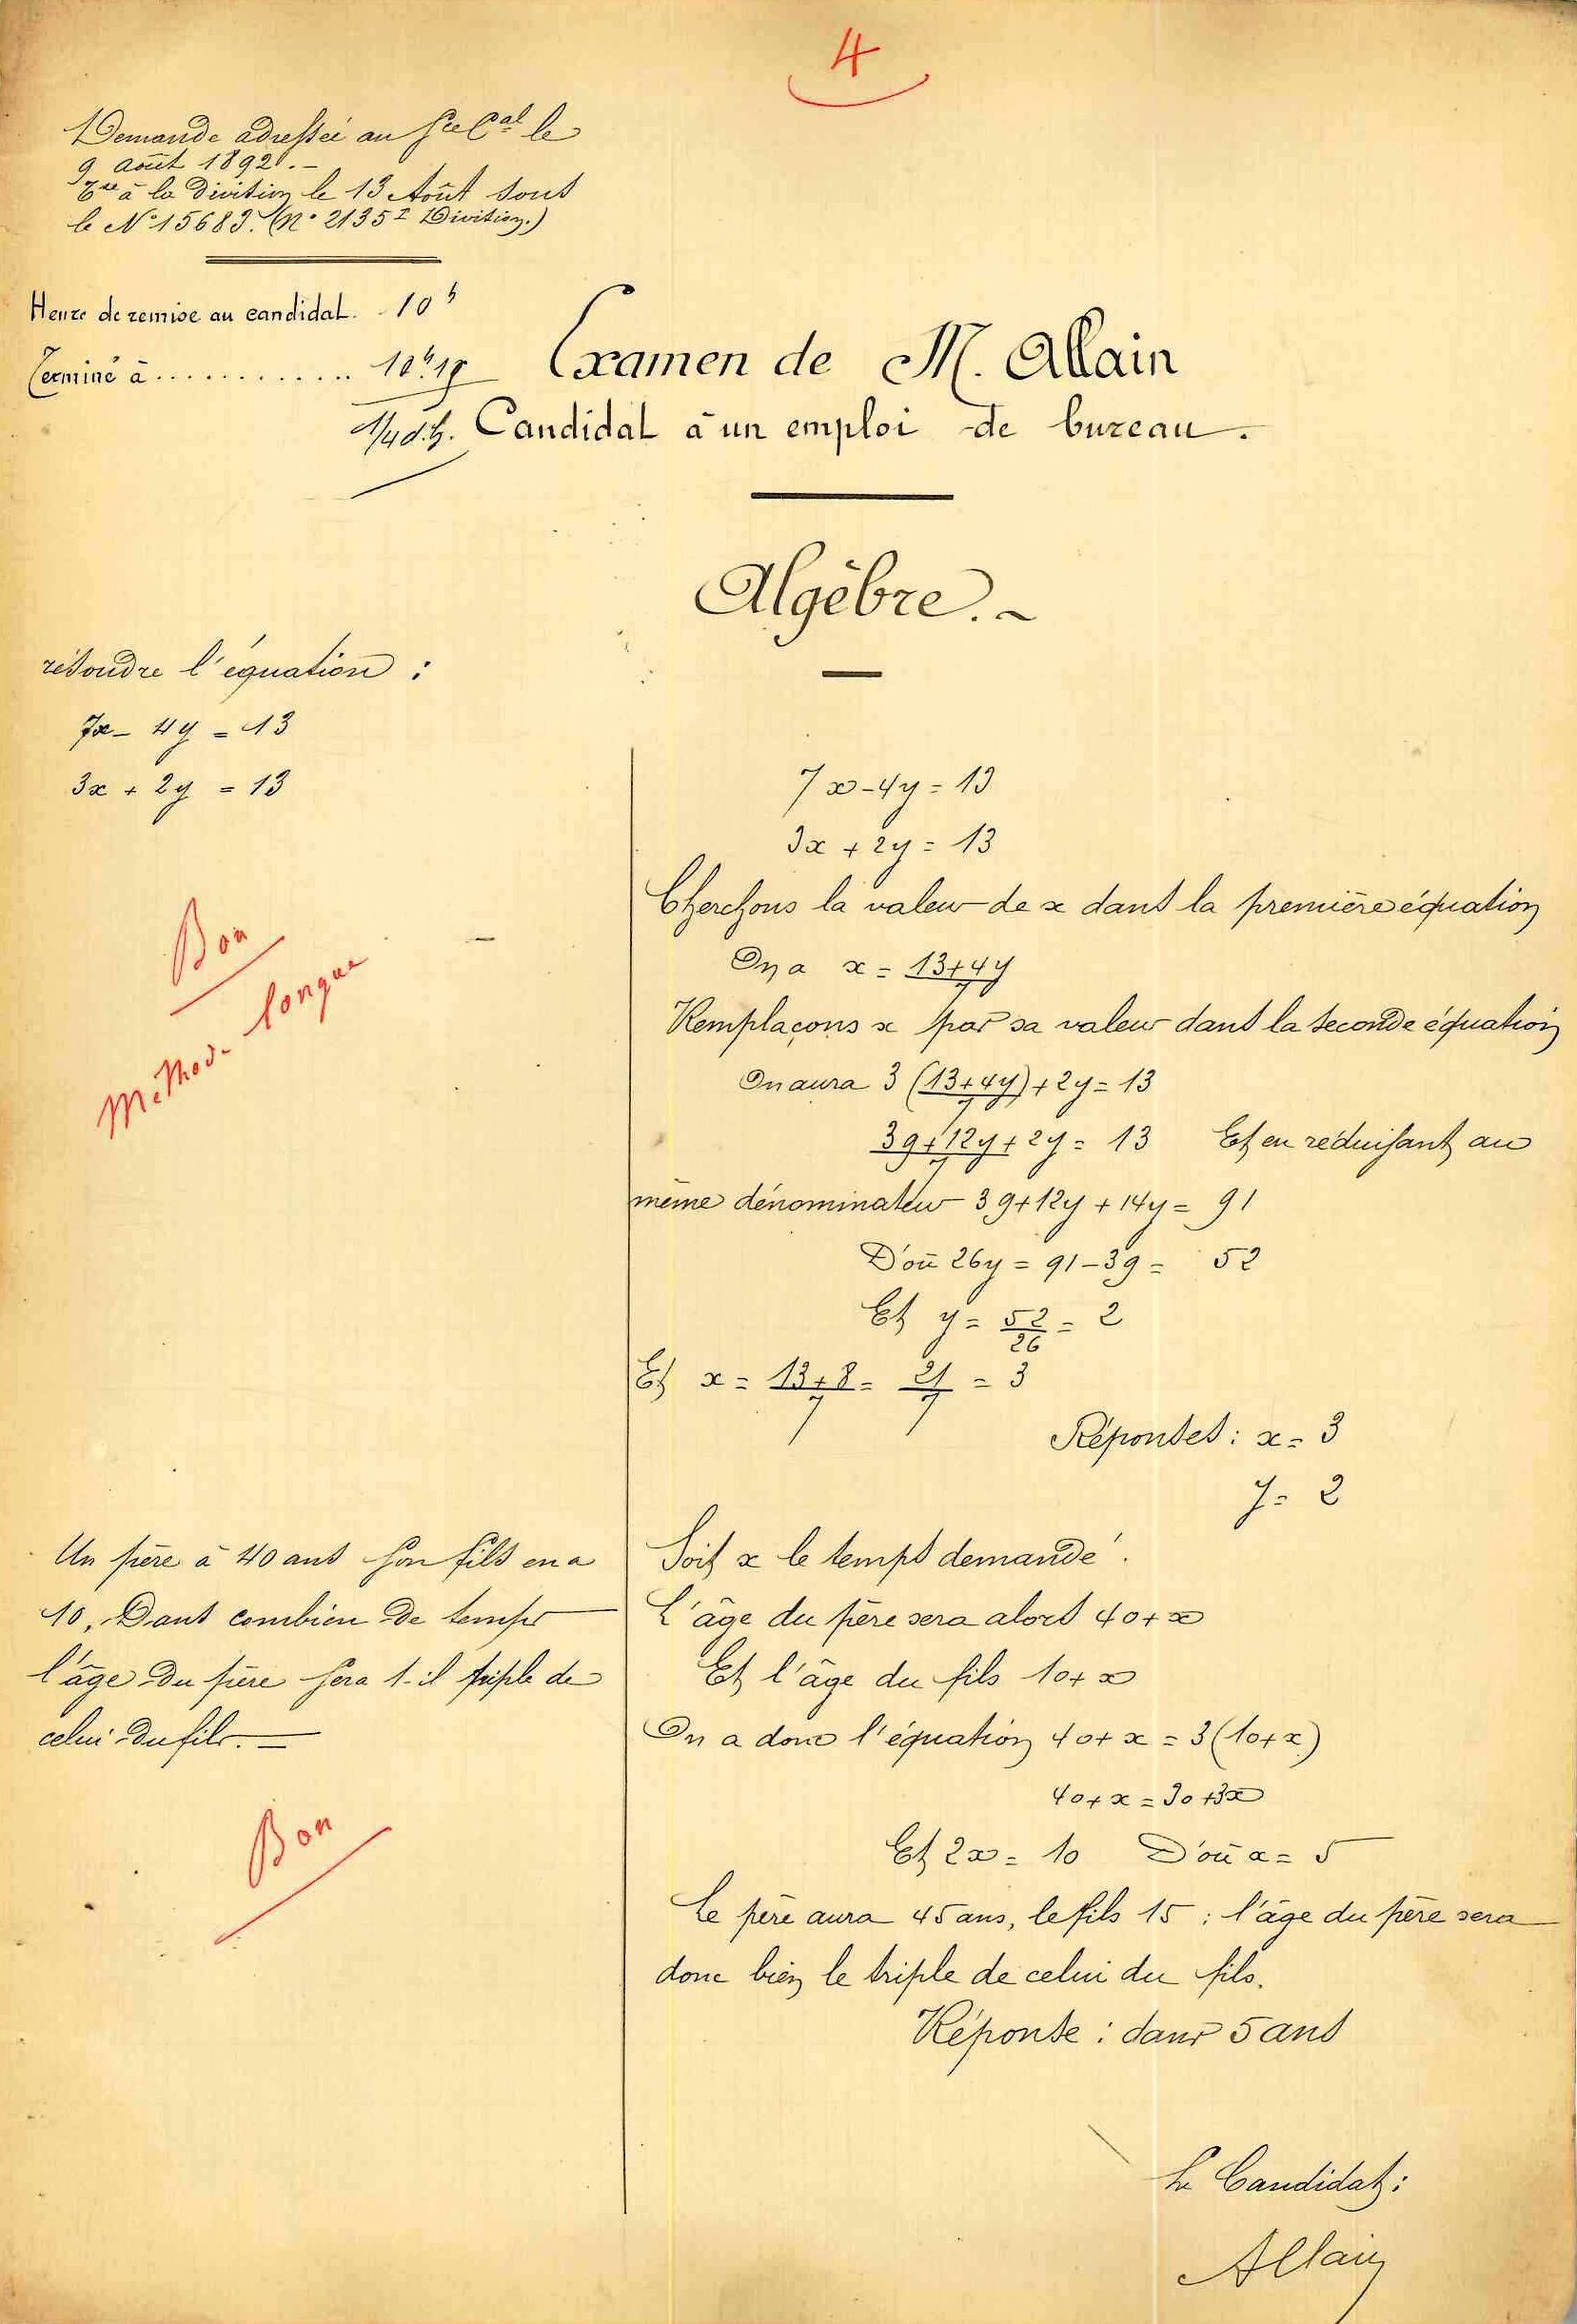 4
Demande adressée au Sce Cal le
9 Août 1892.-
Tse à la Division le 13 Août sous
le N° 15683. (N° 2135 I Division.)
Heure de remise au candidat. 10h
Terminé à............ 10h.15
1/4 d.h.
Examen de M. Allain
Candidat à un emploi de bureau.
Algèbre.-
résoudre l'équation :
7x - 4y = 13
3x + 2y = 13
Bon
Méthode longue
7x - 4y = 13
3x + 2y = 13
Cherchons la valeur de x dans la première équation
On a x = 13+4y
7
Remplaçons x par sa valeur dans la seconde équation
On aura 3 (13+4y) + 2y = 13
7
39+12y + 2y = 13 Et en réduisant au
7
même dénominateur 39+12y + 14y = 91
D'où 26y = 91 - 39 = 52
Et y = 52 = 2
26
Et x = 13+8 = 21 = 3
7 7
Réponses : x = 3
y = 2
Un père à 40 ans son fils en a
10, Dans combien de temps
l'âge du père sera t-il triple de
celui du fils.-
Bon
Soit x le temps demandé.
L'âge du père sera alors 40 + x
Et l'âge du fils 10 + x
On a donc l'équation 40 + x = 3 (10 + x)
40 + x = 30 + 3x
Et 2x = 10 D'où x = 5
Le père aura 45 ans, le fils 15 : l'âge du père sera
donc bien le triple de celui du fils.
Réponse : dans 5 ans
Le Candidat :
Allain